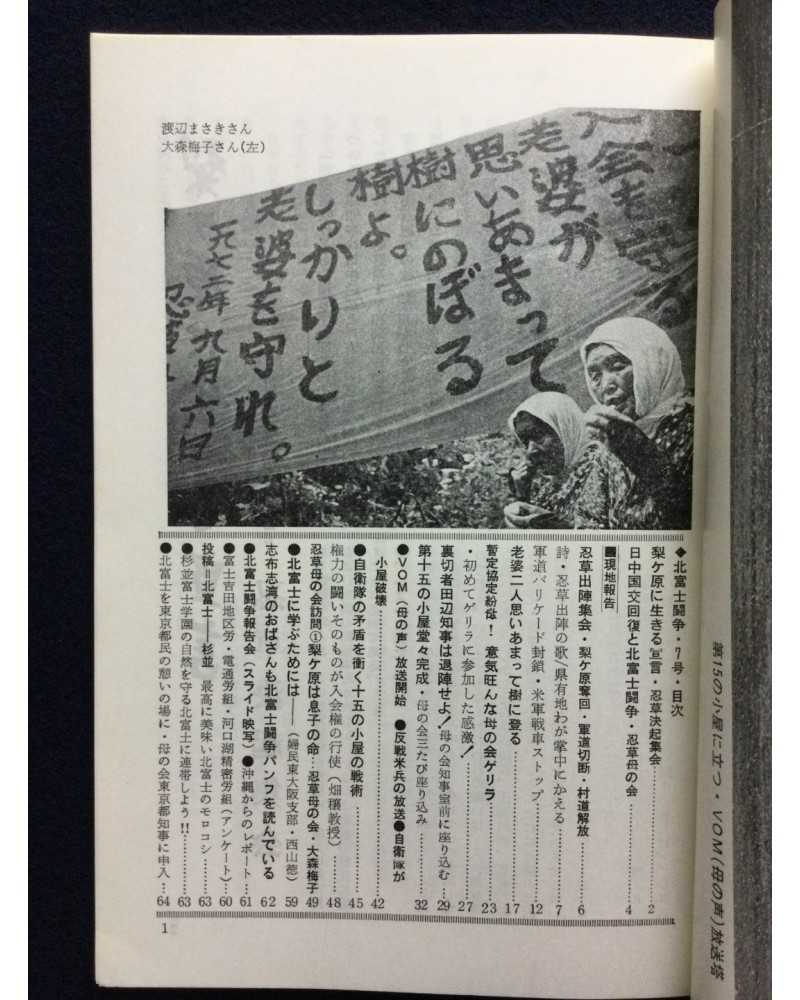 渡辺まさきさん
大森梅子さん(左)
入会を守る
老婆が
思いあまって
樹にのぼる
樹よ。
しっかりと
老婆を守れ。
一九七二年九月六日
忍草
◆北富士闘争・7号・目次
梨ケ原に生きる宣言・忍草決起集会………2
日中国交回復と北富士闘争・忍草母の会………4
■現地報告
忍草出陣集会・梨ケ原奪回・軍道切断・村道解放………6
詩・忍草出陣の歌/県有地わが掌中にかえる………7
軍道バリケード封鎖・米軍戦車ストップ………12
老婆二人思いあまって樹に登る………17
暫定協定紛砕! 意気旺んな母の会ゲリラ………23
・初めてゲリラに参加した感激!………27
裏切者田辺知事は退陣せよ!母の会知事室前に座り込む…29
第十五の小屋堂々完成・母の会三たび座り込み………32
●VOM(母の声)放送開始 ●反戦米兵の放送●自衛隊が
小屋破壊………42
●自衛隊の矛盾を衝く十五の小屋の戦術………45
権力の闘いそのものが入会権の行使(畑穣教授)………48
忍草母の会訪問①梨ケ原は息子の命…忍草母の会・大森梅子 49
●北富士に学ぶためには――(婦民東大阪支部・西山徳) 59
志布志湾のおばさんも北富士闘争パンフを読んでいる 62
●北富士闘争報告会(スライド映写)●沖縄からのレポート…61
●富士吉田地区労・電通労組・河口湖精密労組(アンケート)…60
投稿=北富士――杉並 最高に美味い北富士のモロコシ………63
●杉並富士学園の自然を守る北富士に連帯しよう!!………63
●北富士を東京都民の憩いの場に・母の会東京都知事に申入…64
1
第15の小屋に立つ・VOM(母の声)放送塔